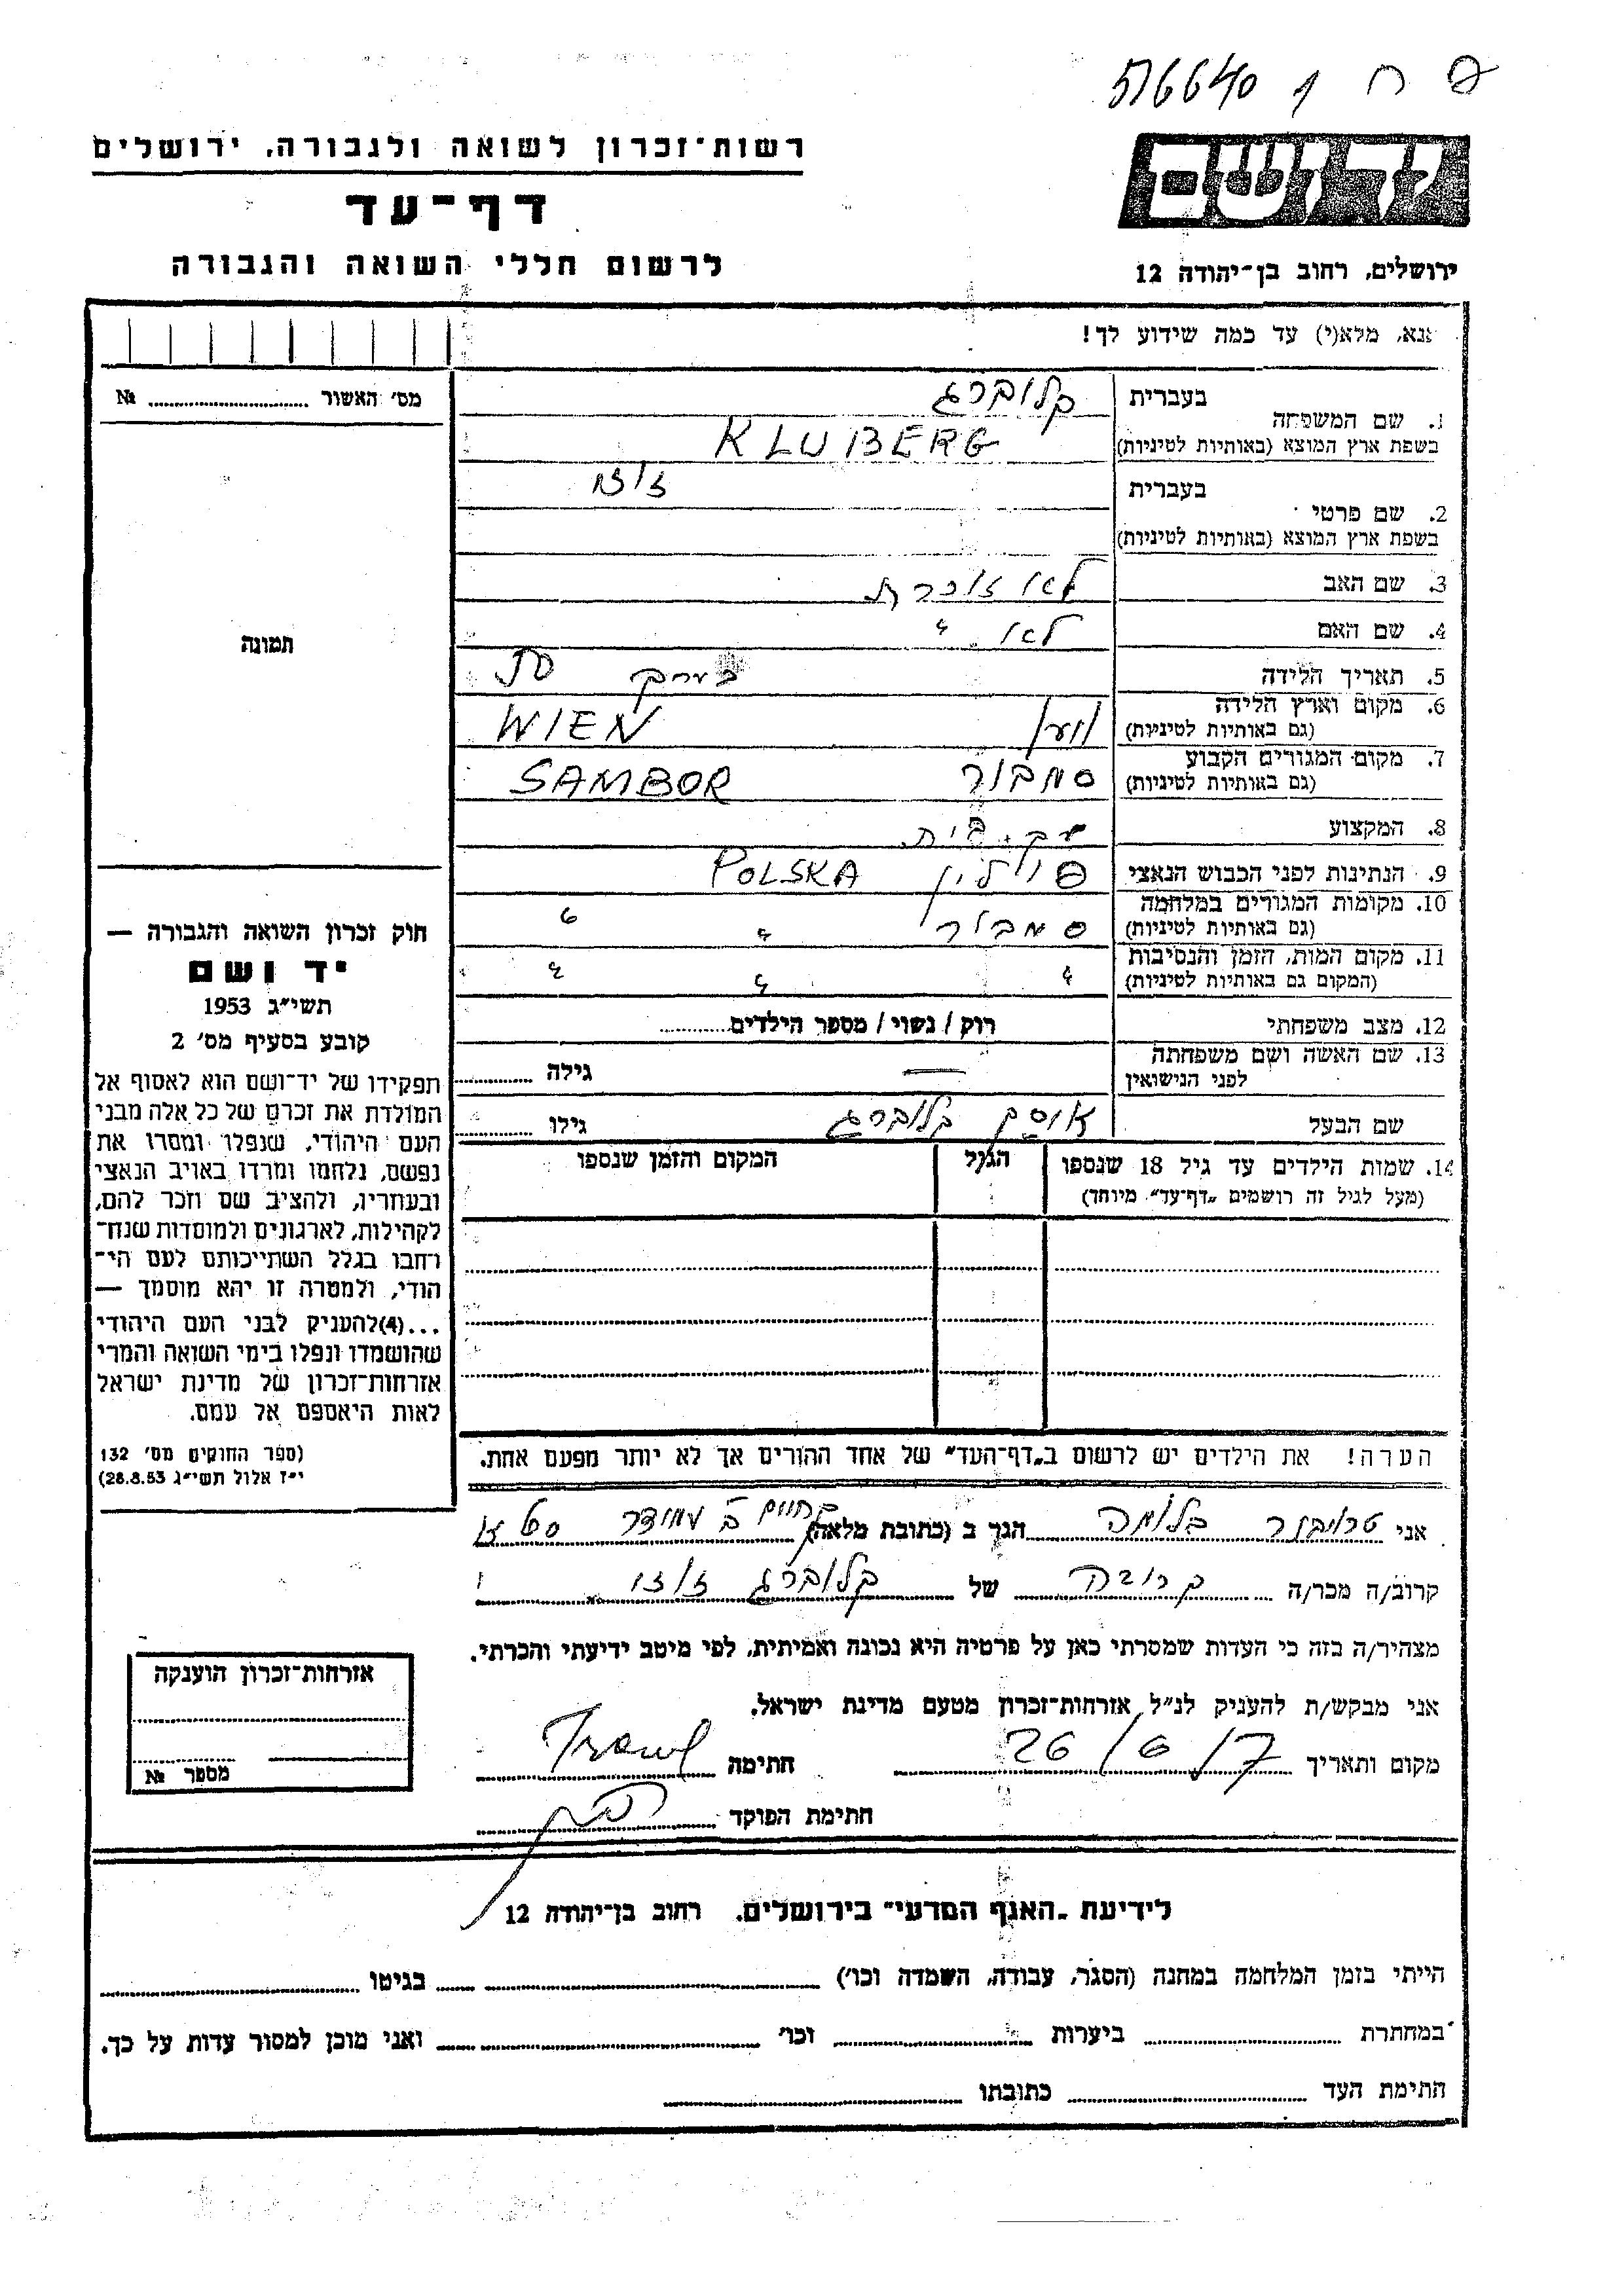 516640 ח פ
רשות־זכרון לשואה ולגבורה, ירושלים
דף־עד
לרשום חללי השואה והגבורה
יד ושם
ירושלים, רחוב בן־יהודה 12
אנא, מלא(י) עד כמה שידוע לך!
מס׳ האשור № ........
1. שם המשפחה בעברית קלוברג
בשפת ארץ המוצא (באותיות לטיניות) KLUBERG
2. שם פרטי בעברית
בשפת ארץ המוצא (באותיות לטיניות)
3. שם האב לא זוכרת
4. שם האם לא "
5. תאריך הלידה בערך
6. מקום וארץ הלידה (גם באותיות לטיניות) WIEN
7. מקום המגורים הקבוע (גם באותיות לטיניות) סמבור SAMBOR
8. המקצוע עק. בית
9. הנתינות לפני הכבוש הנאצי פוילין POLSKA
10. מקומות המגורים במלחמה (גם באותיות לטיניות) סמבור " "
11. מקום המות, הזמן והנסיבות (המקום גם באותיות לטיניות) " " "
12. מצב משפחתי רוק / נשוי / מספר הילדים........
13. שם האשה ושם משפחתה לפני הנישואין — גילה ........
שם הבעל קלוברג גילו ........
14. שמות הילדים עד גיל 18 שנספו (מעל לגיל זה רושמים „דף־עד" מיוחד)
הגיל
המקום והזמן שנספו
תמונה
חוק זכרון השואה והגבורה —
יד ושם
תשי״ג 1953
קובע בסעיף מס׳ 2
תפקידו של יד־ושם הוא לאסוף אל
המולדת את זכרם של כל אלה מבני
העם היהודי, שנפלו ומסרו את
נפשם, נלחמו ומרדו באויב הנאצי
ובעוזריו, ולהציב שם וזכר להם,
לקהילות, לארגונים ולמוסדות שנח־
רחבו בגלל השתייכותם לעם הי־
הודי, ולמטרה זו יהא מוסמך —
...(4)להעניק לבני העם היהודי
שהושמדו ונפלו בימי השואה והמרי
אזרחות־זכרון של מדינת ישראל
לאות היאספם אל עמם.
(ספר החוקים מס׳ 132
י״ז אלול תשי״ג 28.8.53)
הערה! את הילדים יש לרשום ב„דף־העד" של אחד ההורים אך לא יותר מפעם אחת.
אני טראובנר בלומה הגר ב (כתובת מלאה)
קרוב/ה מכר/ה קרובה של קלוברג
מצהיר/ה בזה כי העדות שמסרתי כאן על פרטיה היא נכונה ואמיתית, לפי מיטב ידיעתי והכרתי.
אני מבקש/ת להעניק לנ״ל אזרחות־זכרון מטעם מדינת ישראל.
מקום ותאריך 26/6/7 חתימה
חתימת הפוקד
אזרחות־זכרון הוענקה
מספר №
לידיעת „האגף המדעי" בירושלים, רחוב בן־יהודה 12
הייתי בזמן המלחמה במחנה (הסגר, עבודה, השמדה וכו׳) ........ בגיטו ........
במחתרת ........ ביערות ........ וכו׳ ........ ואני מוכן למסור עדות על כך.
חתימת העד ........ כתובתו ........